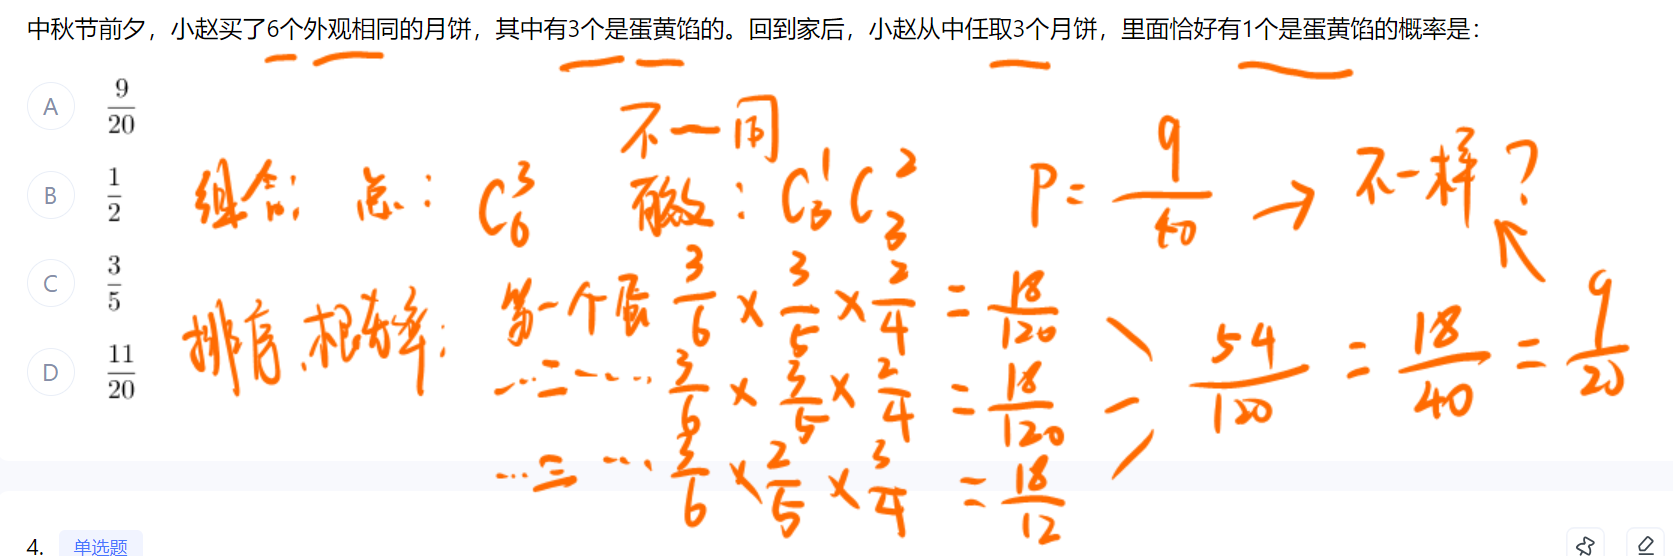 中秋节前夕，小赵买了6个外观相同的月饼，其中有3个是蛋黄馅的。回到家后，小赵从中任取3个月饼，里面恰好有1个是蛋黄馅的概率是：
A 9/20
不一同
B 1/2
组合: 总: C₆³ C₃¹C₃² P=9/40 → 不一样?
C 3/5
排序、概率: 第一个蛋 3/6×3/5×2/4=18/120
…二…… 3/6×3/5×2/4=18/120
54/120=18/40=9/20
D 11/20
…三… 3/6×2/5×3/4=18/12
4. 单选题